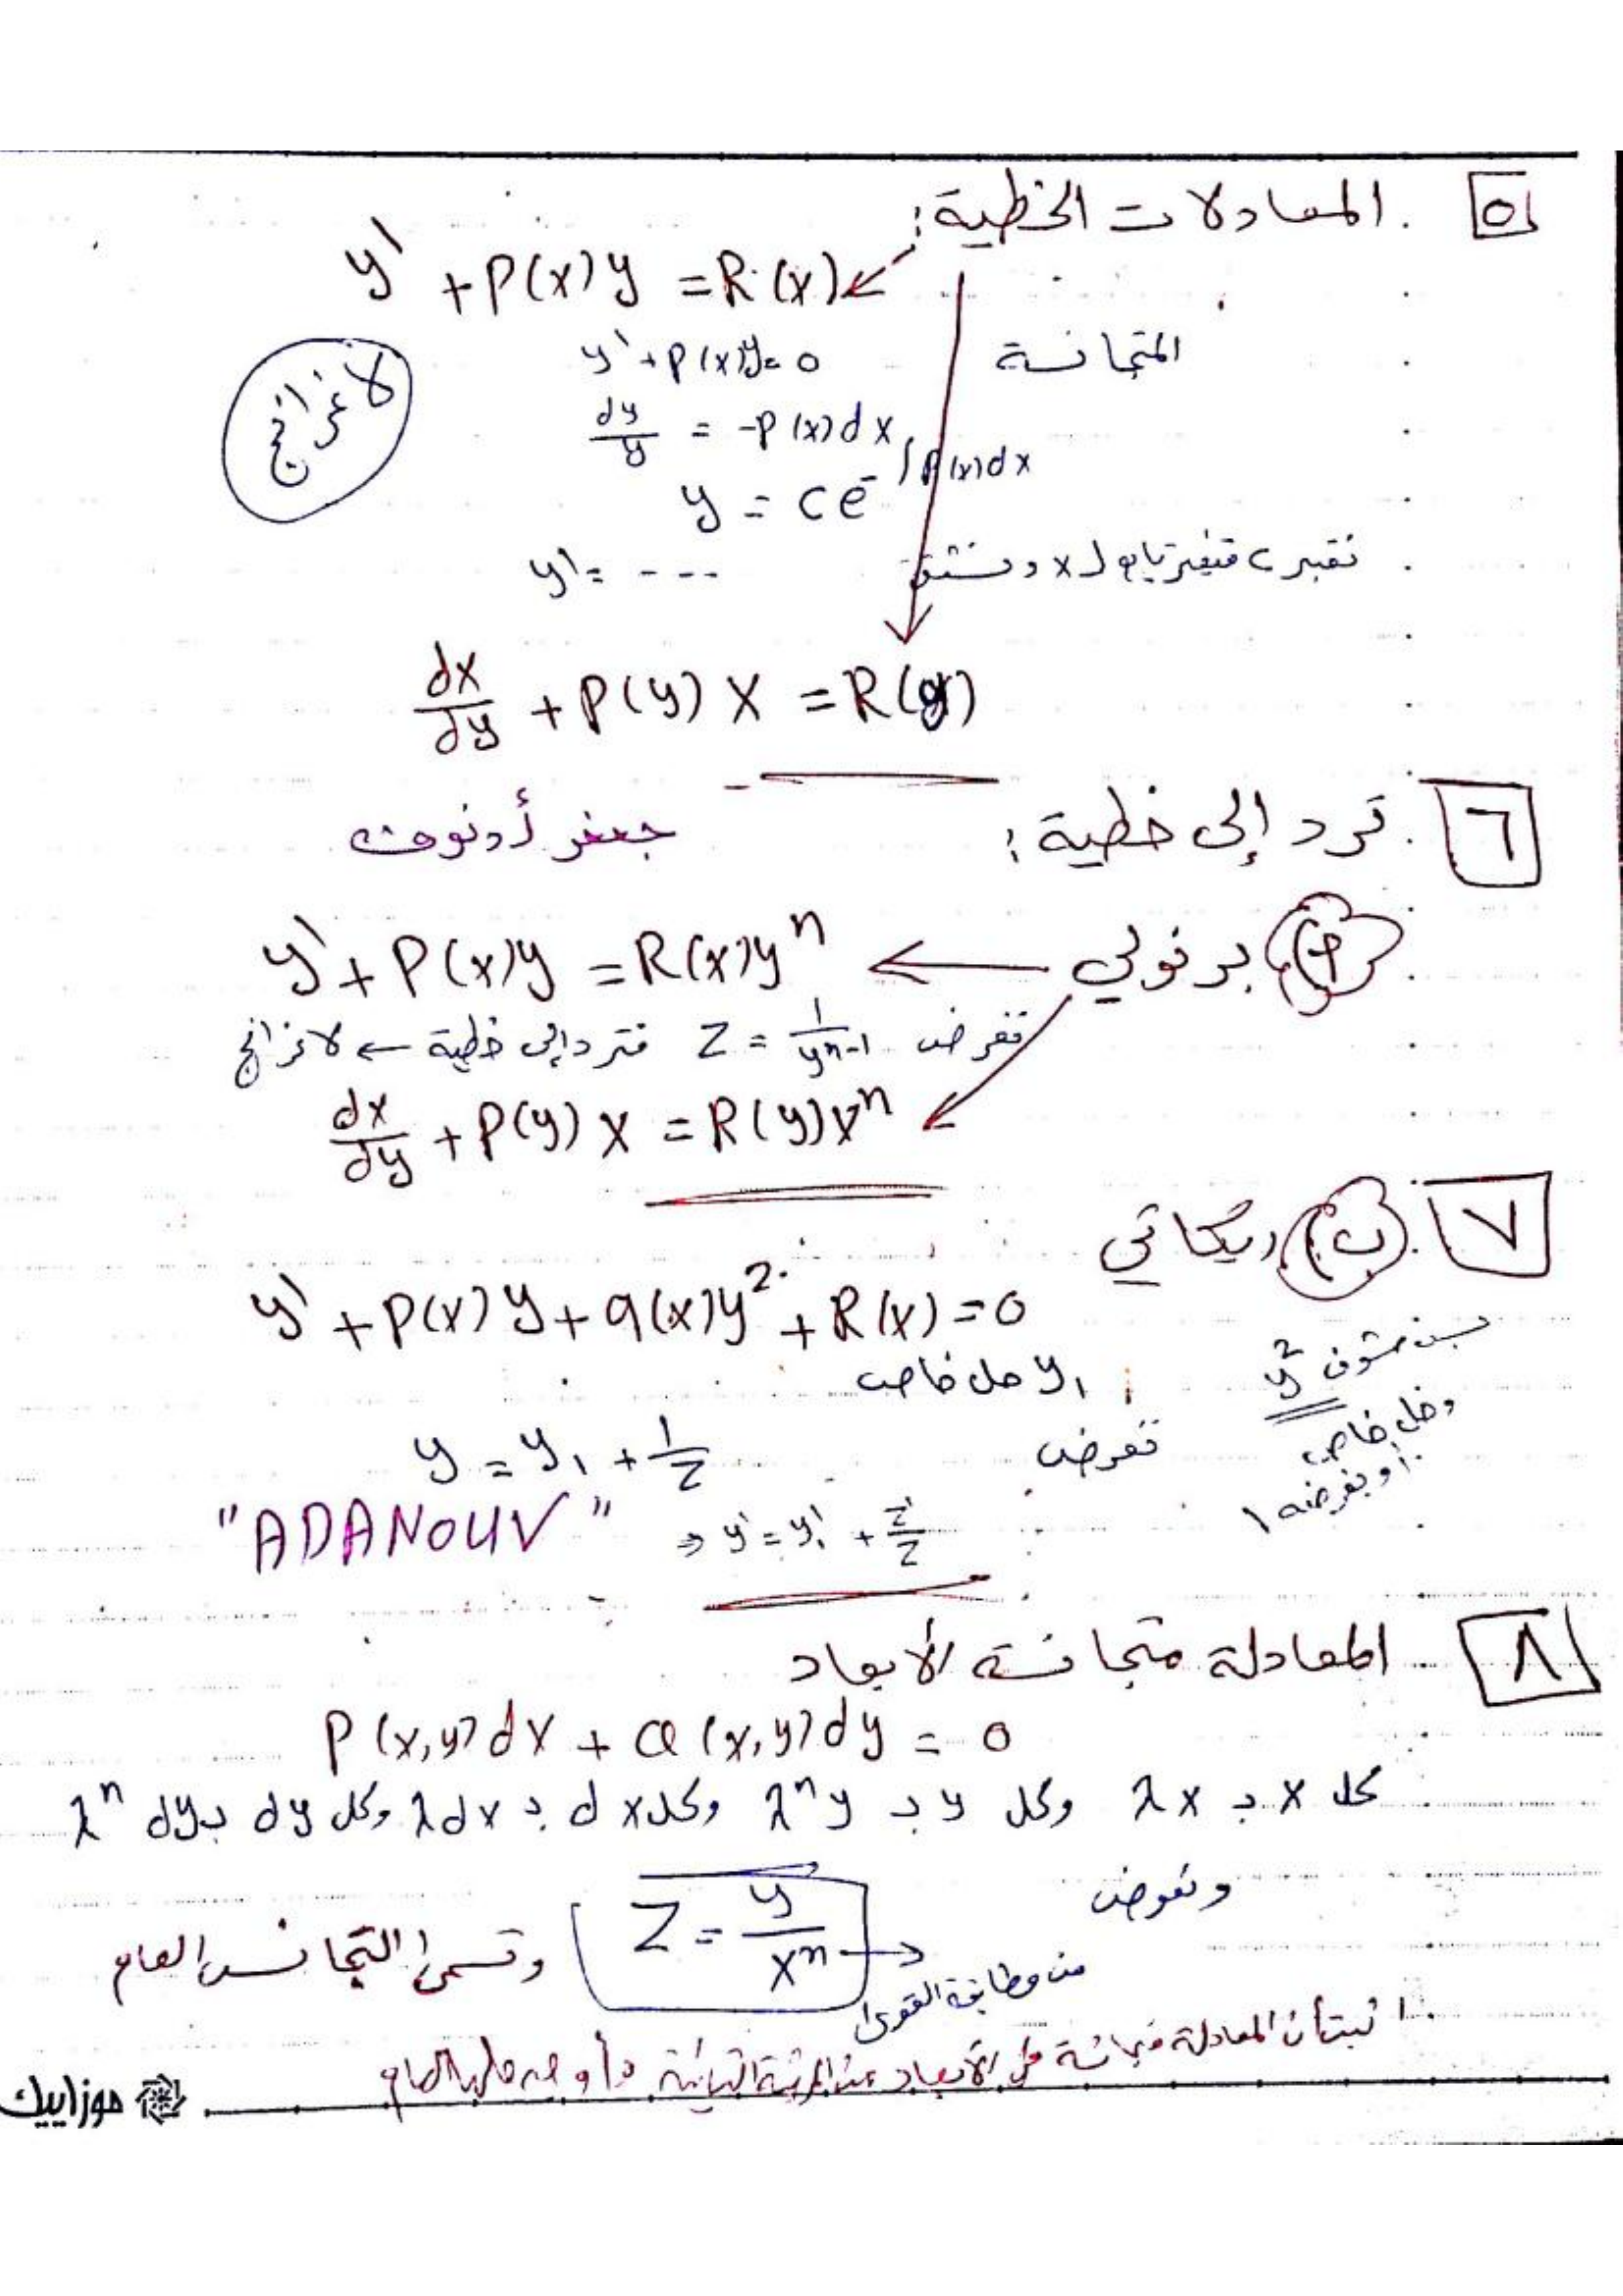 ٥. المعادلات الخطية:
y' + P(x)y = R(x)
المتجانسة y' + P(x)y = 0
لاغرانج
dy/y = -P(x)dx
y = c e^{-∫P(x)dx}
نعتبر c متغير تابع لـ x ونشتق y' = ---
dx/dy + P(y) x = R(y)
٦. ترد إلى خطية:
جعفر أدنوف
P) برنولي ← y' + P(x)y = R(x)y^n
نفرض Z = 1/y^{n-1} فترد إلى خطية ← لاغرانج
dx/dy + P(y) x = R(y)x^n
٧. ب) ريكاتي
y' + P(x)y + q(x)y² + R(x) = 0
y₁ حل خاص
y²
وحل خاص
أو بفرضه ١
نفرض y = y₁ + 1/Z
"ADANOUV" ⇒ y' = y₁' + Z'/Z
٨. المعادلة متجانسة الأبعاد
P(x,y)dx + Q(x,y)dy = 0
كل x بـ λx وكل y بـ λ^n y وكل dx بـ λdx وكل dy بـ λ^n dy
ونعوض
Z = y/x^n → من مطابقة القوى
وتسمى التجانس العام
المعادلة
موزاييك